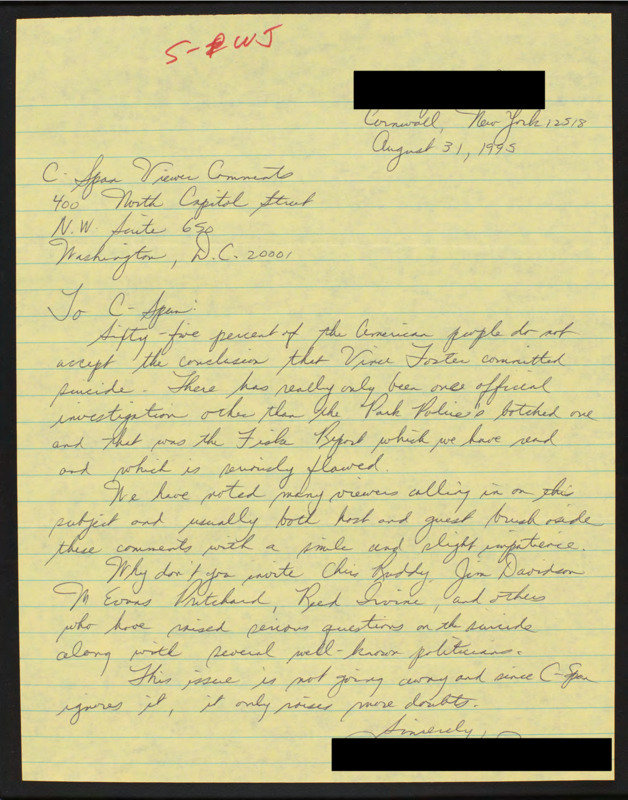 S-RWJ
Cornwall, New York 12518
August 31, 1995
C-Span Viewer Comments
400 North Capitol Street
N.W. Suite 650
Washington, D.C. 20001
To C-Span:
Sixty-five percent of the American people do not
accept the conclusion that Vince Foster committed
suicide. There has really only been one official
investigation other than the Park Police's botched one
and that was the Fiske Report which we have read
and which is seriously flawed.
We have noted many viewers calling in on this
subject and usually both host and guest brush aside
these comments with a smile and slight impatience.
Why don't you invite Chris Ruddy, Jim Davidson
Evans Pritchard, Reed Irvine, and others
who have raised serious questions on the suicide
along with several well-known politicians.
This issue is not going away and since C-Span
ignores it, it only raises more doubts.
Sincerely,